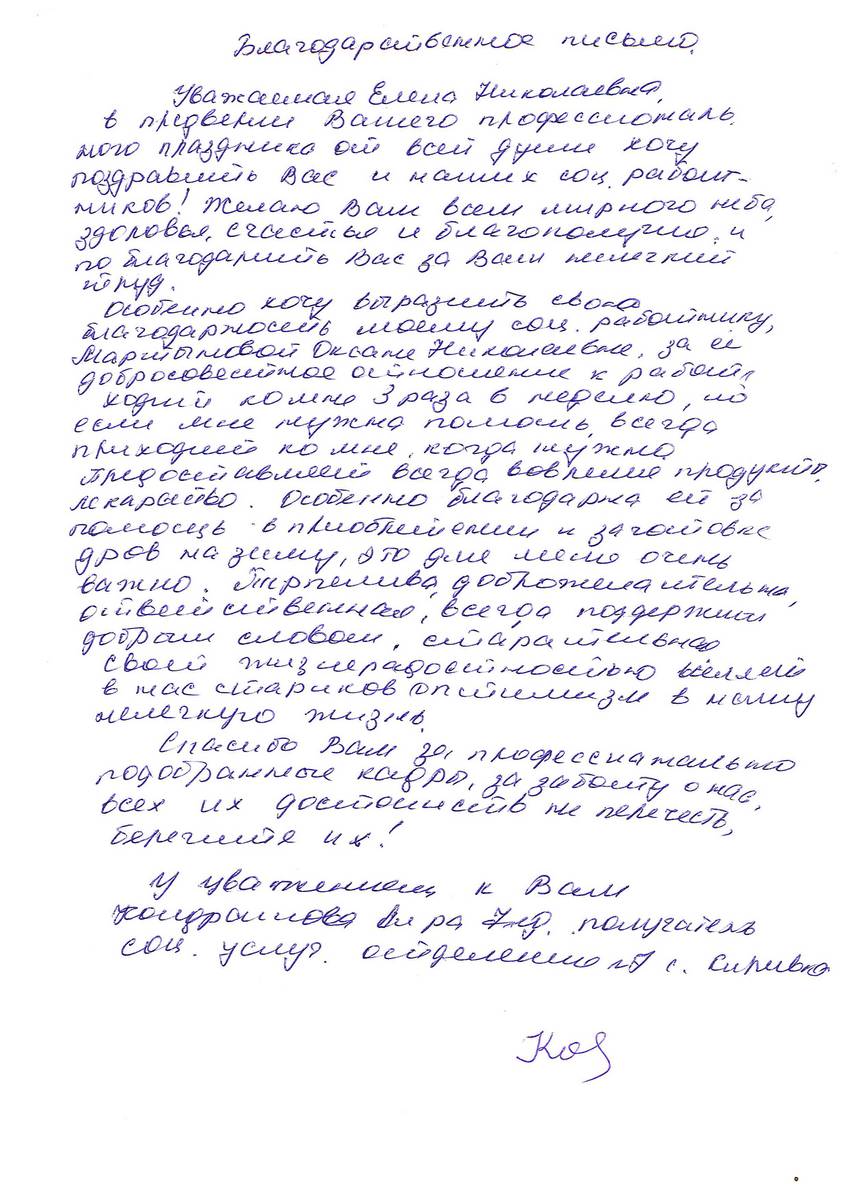 Благодарственное письмо.
Уважаемая Елена Николаевна,
в предверии Вашего профессиональ.
ного праздника от всей души хочу
поздравить Вас и наших соц. работ-
ников! Желаю Вам всем мирного неба,
здоровья, счастья и благополучия. и
поблагодарить Вас за Ваш нелегкий
труд.
Особенно хочу выразить свою
благодарность моему соц. работнику,
Мартыновой Оксане Николаевне, за её
добросовестное отношение к работе
ходит ко мне 3 раза в неделю, но
если мне нужна помощь, всегда
приходит ко мне, когда нужно
Предоставляет всегда вовремя продукты,
лекарство. Особенно благодарна ей за
помощь в приобретении и заготовке
дров на зиму, это для меня очень
важно. Терпелива, доброжелательна,
ответственная, всегда поддержит
добрым словом, старательная
своей жизнерадостностью вселяет
в нас стариков оптимизм в нашу
нелегкую жизнь.
Спасибо Вам за профессионально
подобранные кадры, за заботу о нас,
всех их достоинств не перечесть,
берегите их!
У уважением к Вам
Кондрашова получатель
соц. услуг. отделение с.